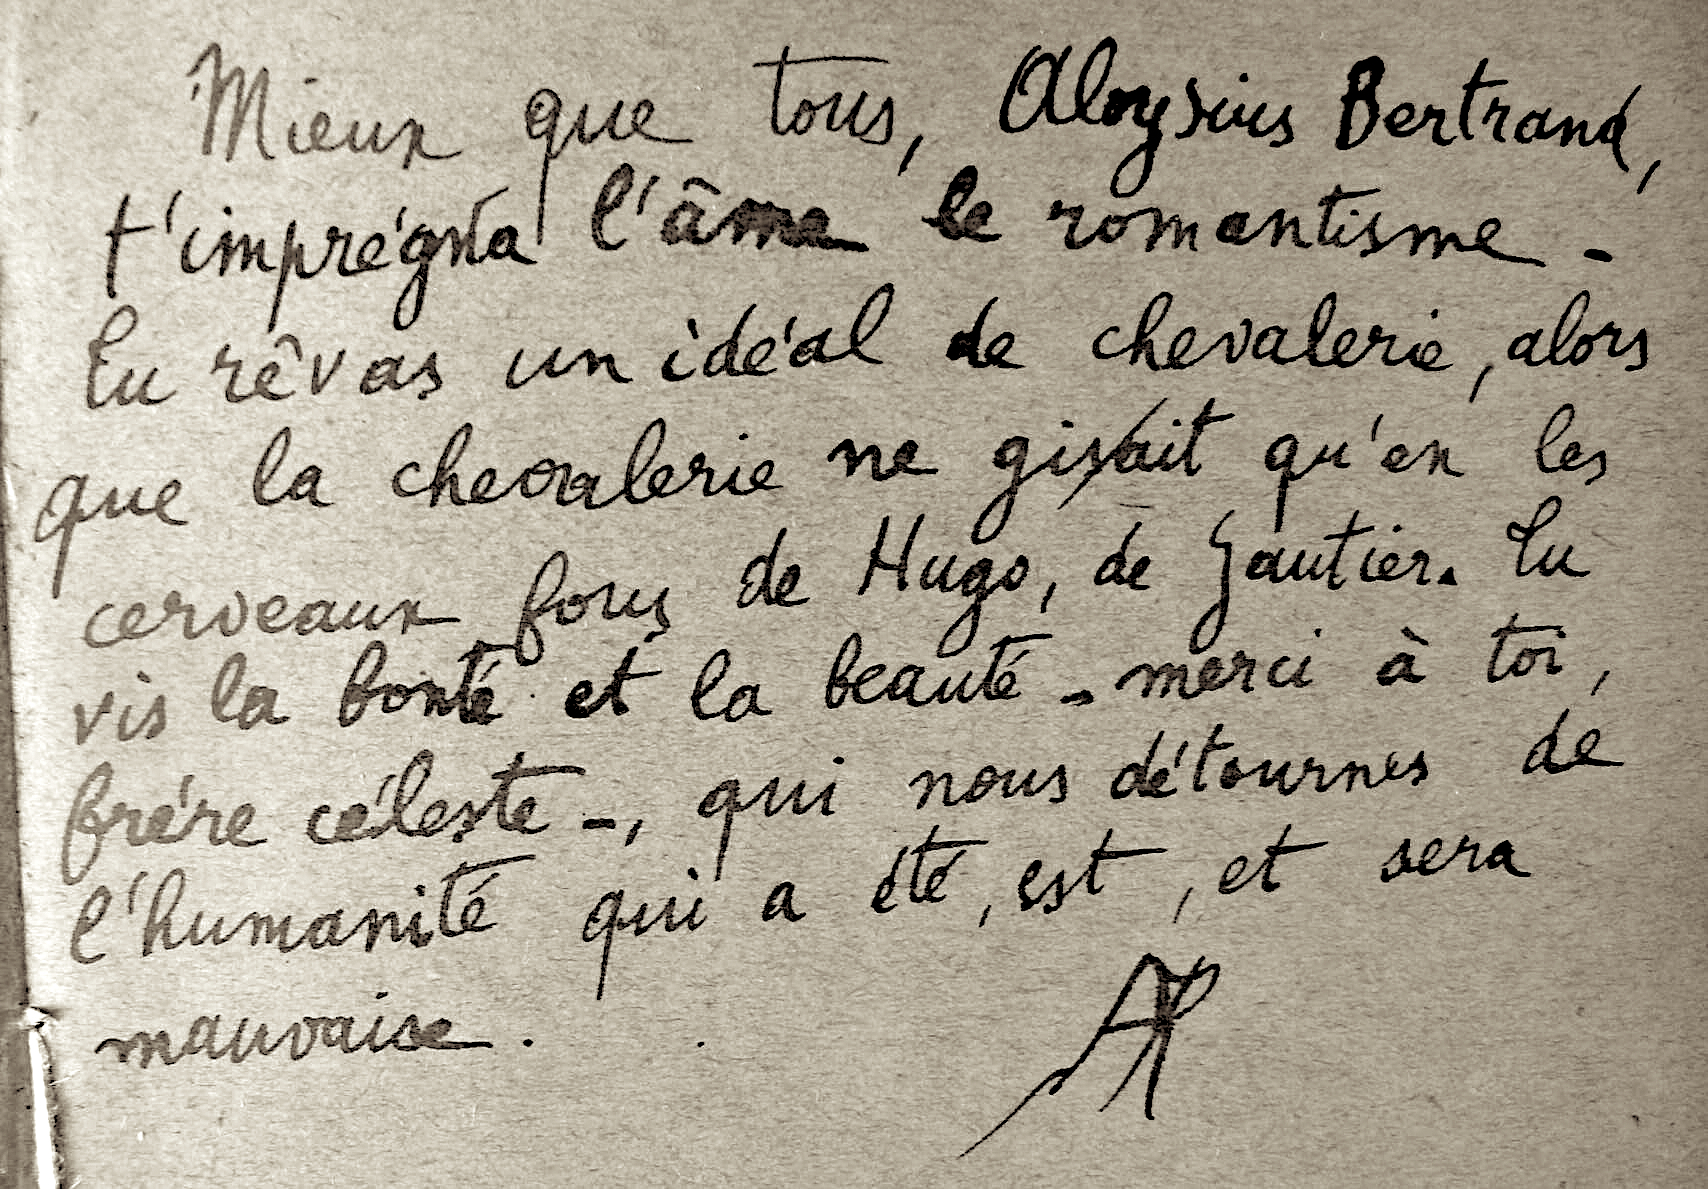 Mieux que tous, Aloysius Bertrand,
t'imprégna l'âme le romantisme -
Tu rêvas un idéal de chevalerie, alors
que la chevalerie ne gisait qu'en les
cerveaux fous de Hugo, de Gautier. Tu
vis la bonté et la beauté - merci à toi,
frére céleste -, qui nous détournes de
l'humanité qui a été, est, et sera
mauvaise.
AP